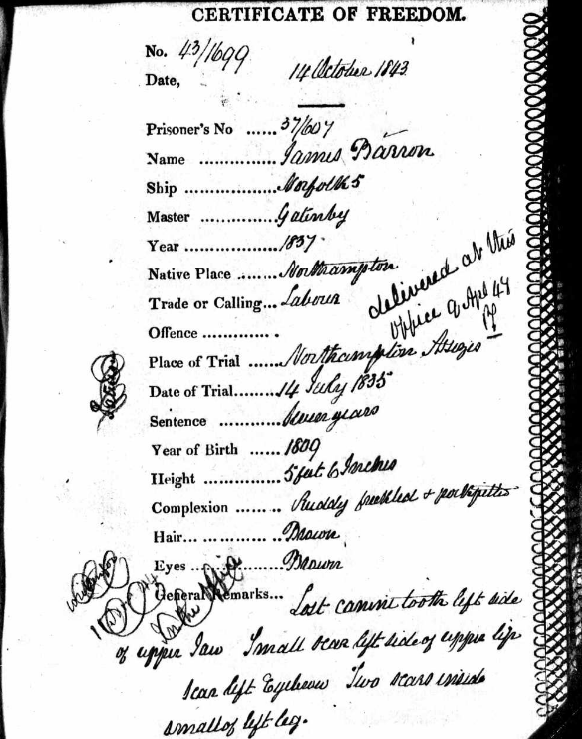 CERTIFICATE OF FREEDOM.
No. 43/1699
Date, 14 October 1843
Prisoner's No ...... 37/607
Name .............. James Barron
Ship ................. Norfolk 5
Master .............. Gatenby
Year ................... 1837
Native Place ........ Northampton
Trade or Calling... Labour
delivered at this
office 9 Apl 47
Offence ..............
Place of Trial ...... Northampton Assizes
Date of Trial........ 14 July 1835
Sentence ............ Seven years
Year of Birth ...... 1809
Height ............... 5 feet 6 Inches
Complexion ......... Ruddy freckled + pockpitted
Hair................. Brown
Eyes ................. Brown
General Remarks... Lost canine tooth left side
of upper Jaw Small scar left side of upper lip
scar left Eyebrow Two scars inside
small of left leg.
In the Office